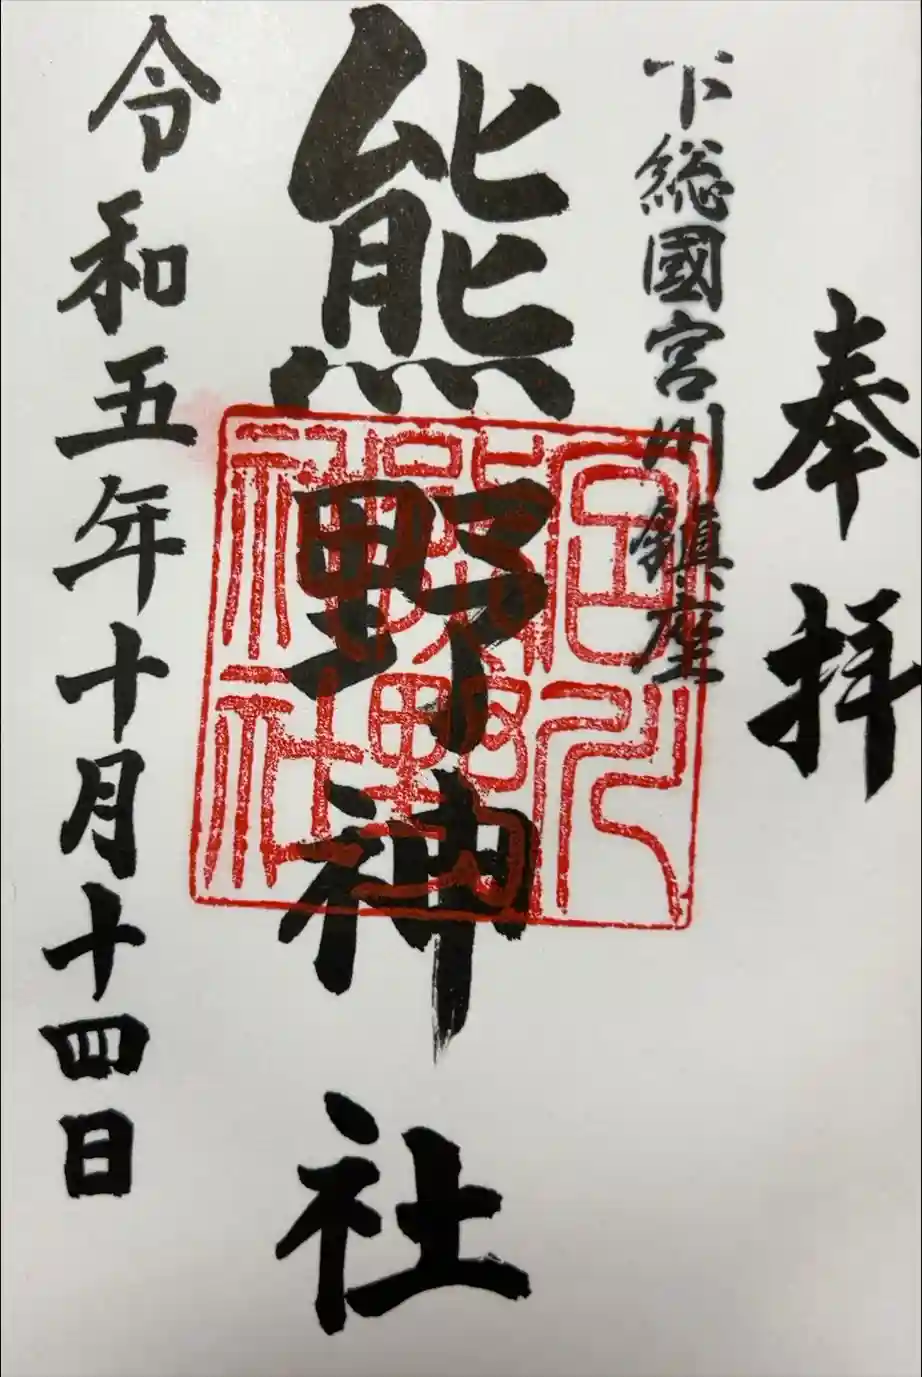 奉拝
下総國宮川鎮座
熊野神社
令和五年十月十四日
宮川
熊野
神社